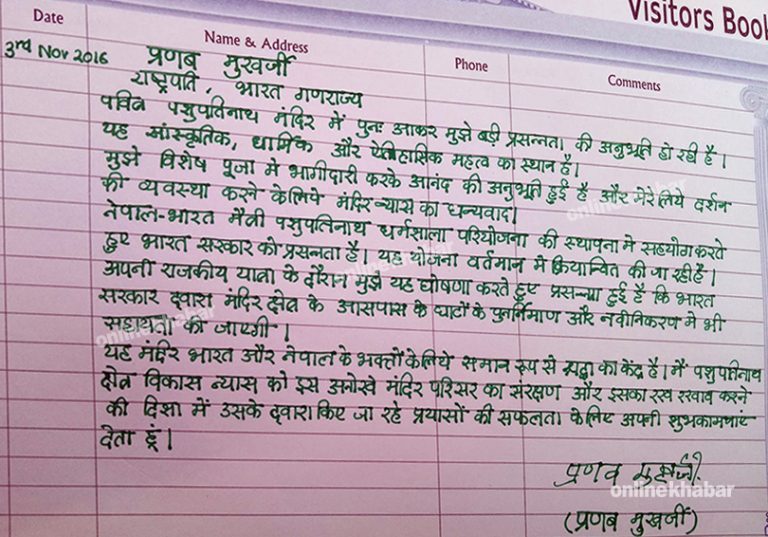 Visitors Book
Date
Name & Address
Phone
Comments
3rd Nov 2016
प्रणब मुखर्जी
राष्ट्रपति, भारत गणराज्य
पवित्र पशुपतिनाथ मंदिर में पुनः आकर मुझे बड़ी प्रसन्नता की अनुभूति हो रही है।
यह सांस्कृतिक, धार्मिक और ऐतिहासिक महत्व का स्थान है।
मुझे विशेष पूजा मे भागीदारी करके आनंद की अनुभूति हुई है और मेरे लिये दर्शन
की व्यवस्था करने के लिये मंदिर न्यास का धन्यवाद।
नेपाल-भारत मैत्री पशुपतिनाथ धर्मसाला परियोजना की स्थापना मे सहयोग करते
हुए भारत सरकार को प्रसन्नता है। यह योजना वर्तमान मे क्रियान्वित की जा रही है।
अपनी राजकीय यात्रा के दौरान मुझे यह घोषणा करते हुए प्रसन्न्ता हुई है कि भारत
सरकार द्वारा मंदिर क्षेत्र के आसपास के घाटों के पुनर्निमाण और नवीनिकरण मे भी
सहायता की जाएगी।
यह मंदिर भारत और नेपाल के भक्तों के लिये समान रूप से श्रद्धा का केंद्र है। मैं पशुपतिनाथ
क्षेत्र विकास न्यास को इस अनोखे मंदिर परिसर का संरक्षण और इसका रख रखाव करने
की दिशा में उसके द्वारा किए जा रहे प्रयासों की सफलता के लिए अपनी शुभकामनाएं
देता हूं।
प्रणब मुखर्जी
(प्रणब मुखर्जी)
onlinekhabar
onlinekhabar
onlinekhabar
onlinekhabar